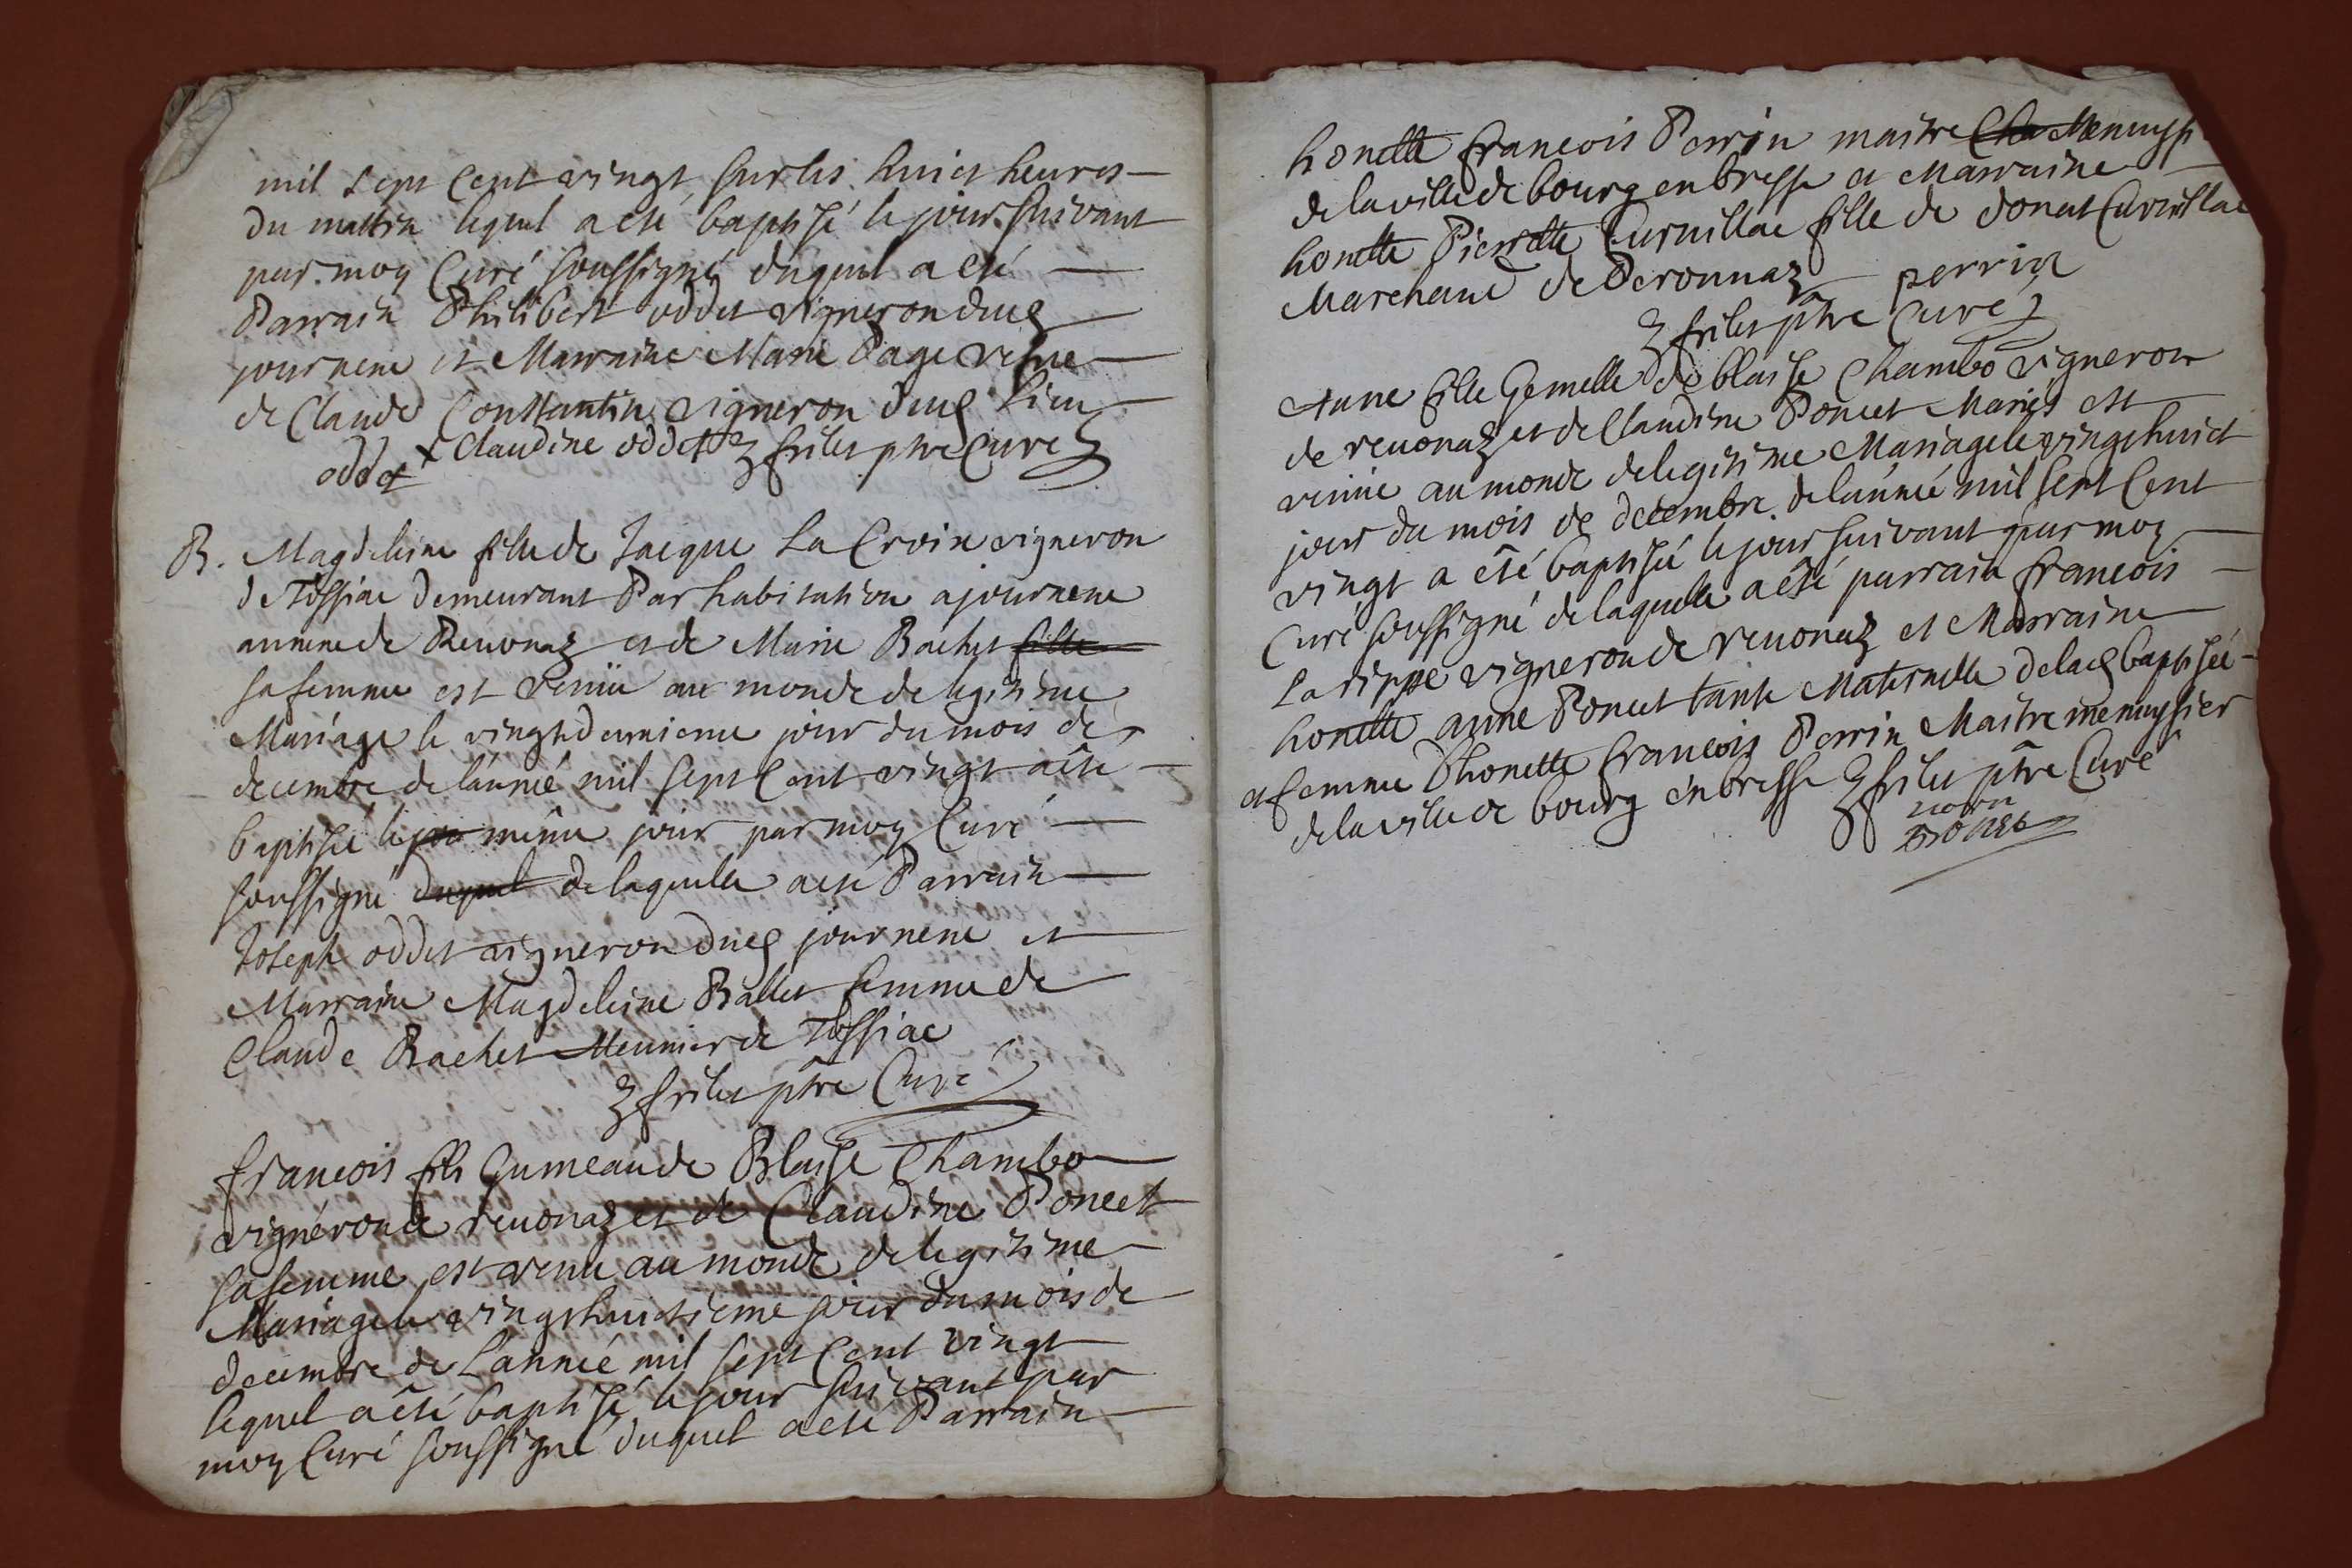 mil sept cent vingt sur les huict heures
du mattin lequel a eté baptisé le jour suivant
par moy Curé soussigné duquel a eté
Parrain Philibert oddet vigneron dud
journene et Marraine Marie Page vefve
de Claude Constantin vigneron dud lieu
oddet Claudine oddet frilet ptre Curé
B. Magdeleine fille de Jacque La Croix vigneron
de Tossiac demeurant Par habitation a journene
anneme de Revonaz et de Marie Rachet fille
sa femme est venüe au monde de legitime
Mariage le vingtdeuxieme jour du mois de
decembre de l'année mil sept Cent vingt a êté
baptisée le jou même jour par moy Curé
soussigné duquel de laquelle a eté Parrain
Joseph oddet vigneron dud journene et
Marraine Magdeleine Ballet femme de
Claude Rachet Meunier de Tossiac
frilet ptre Curé
francois fils Gumeau de Blaise Chambo
vigneron de revonaz et de Claudine Poncet
sa femme est venu au monde de legitime
Mariage le vingthuictieme jour du mois de
decembre de L'année mil sept Cent vingt
lequel a êté baptisé le jour suivant par
moy Curé soussigné duquel a eté Parrain
honette francois Perrin maitre Cha Menuysi
de la ville de bourg en bresse et Marraine
honette Pierrette Curnillac fille de donat Curnillac
Marchand de Peronnaz perrin
frilet ptre Curé
Anne fille Gemelle de blaise Chambo vigneron
de revonaz et de Claudine Poncet Mariés est
venüe au monde de legitime Mariage le vingthuict
jour du mois de decembre de l'année mil sept Cent
vingt a êté baptisée le jour suivant par moy
Curé soussigné de laquelle a êté parrain francois
La rippe vigneron de revonaz et Marraine
honette anne Poncet tante Maternelle de lad baptisée
et femme D'honette francois Perrin Maitre menuysier
de la ville de bourg en bresse frilet ptre Curé